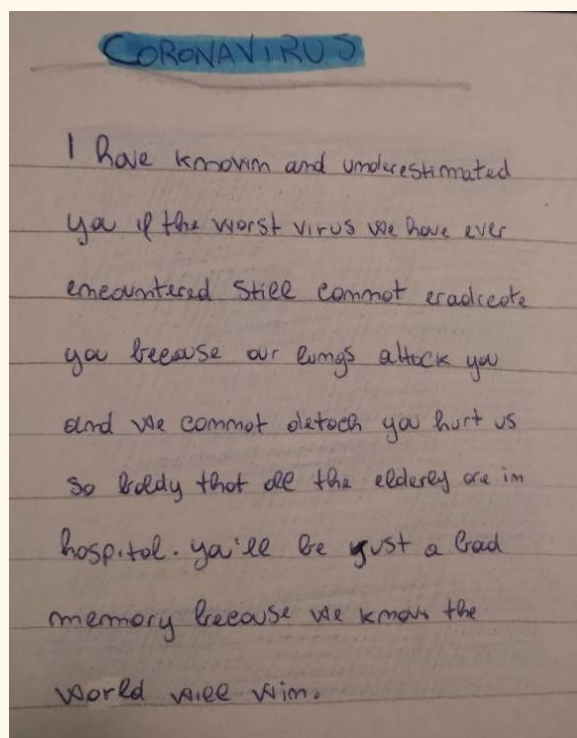 CORONAVIRUS
I have known and underestimated
you if the worst virus we have ever
encountered still cannot eradicate
you because our lungs attack you
and we cannot detach you hurt us
so badly that all the elderly are in
hospital. you'll be just a bad
memory because we know the
world will win.